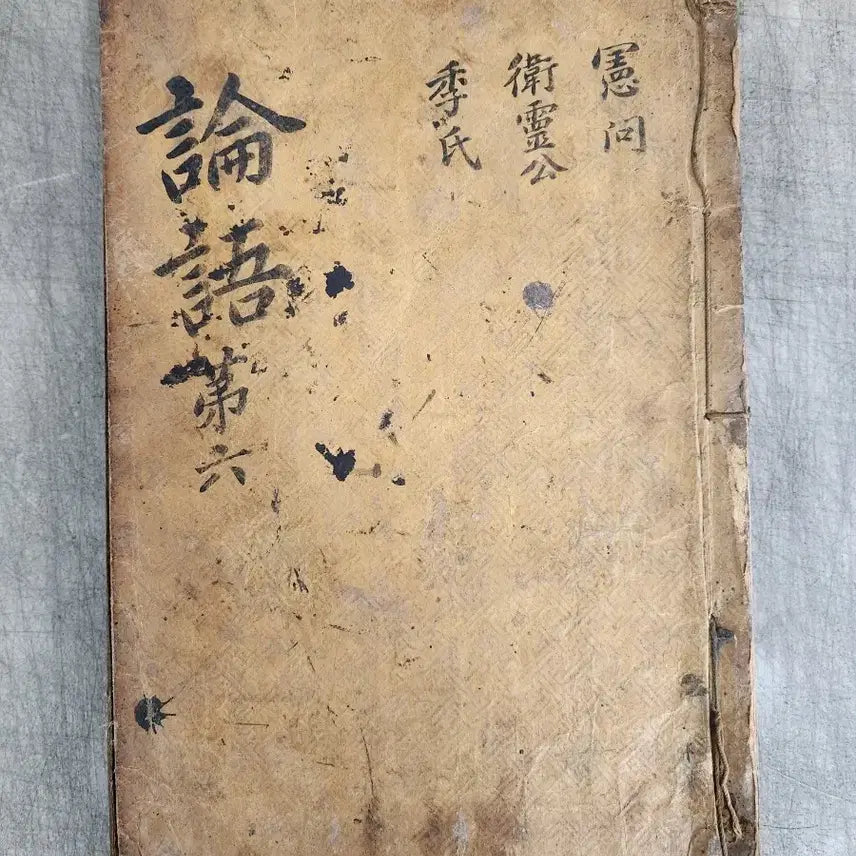 憲问
衛靈公
季氏
論語第六